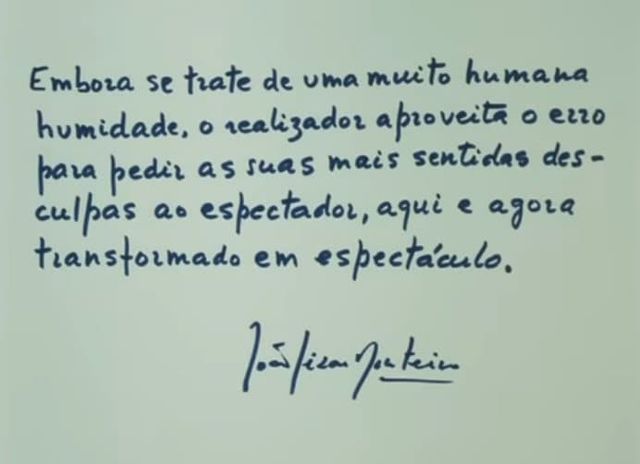 Embora se trate de uma muito humana
humidade, o realizador aproveita o erro
para pedir as suas mais sentidas des-
culpas ao espectador, aqui e agora
transformado em espectáculo.
João César Monteiro